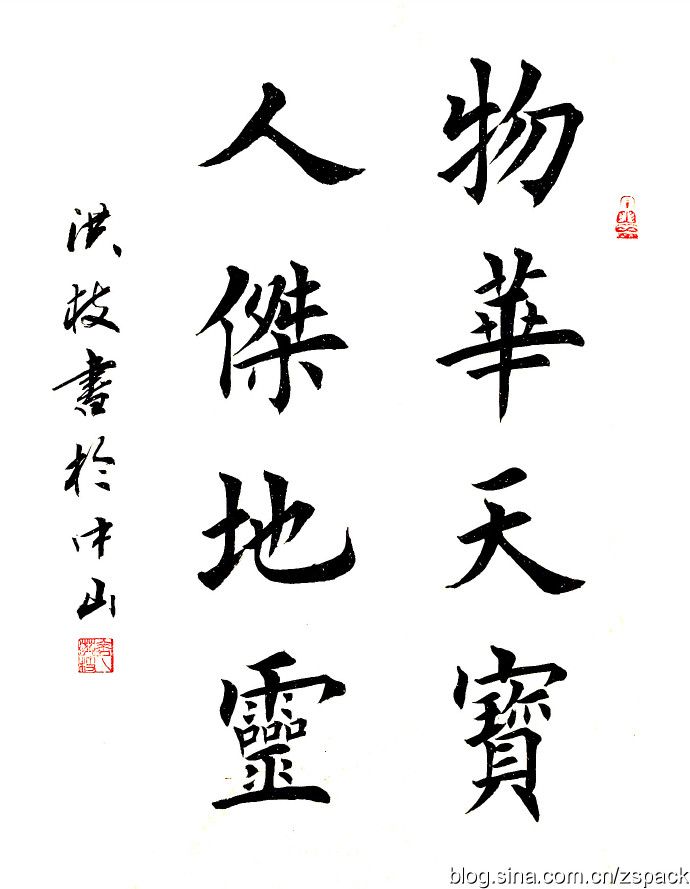 物華天寶
人傑地靈
洪枝書於中山
blog.sina.com.cn/zspack